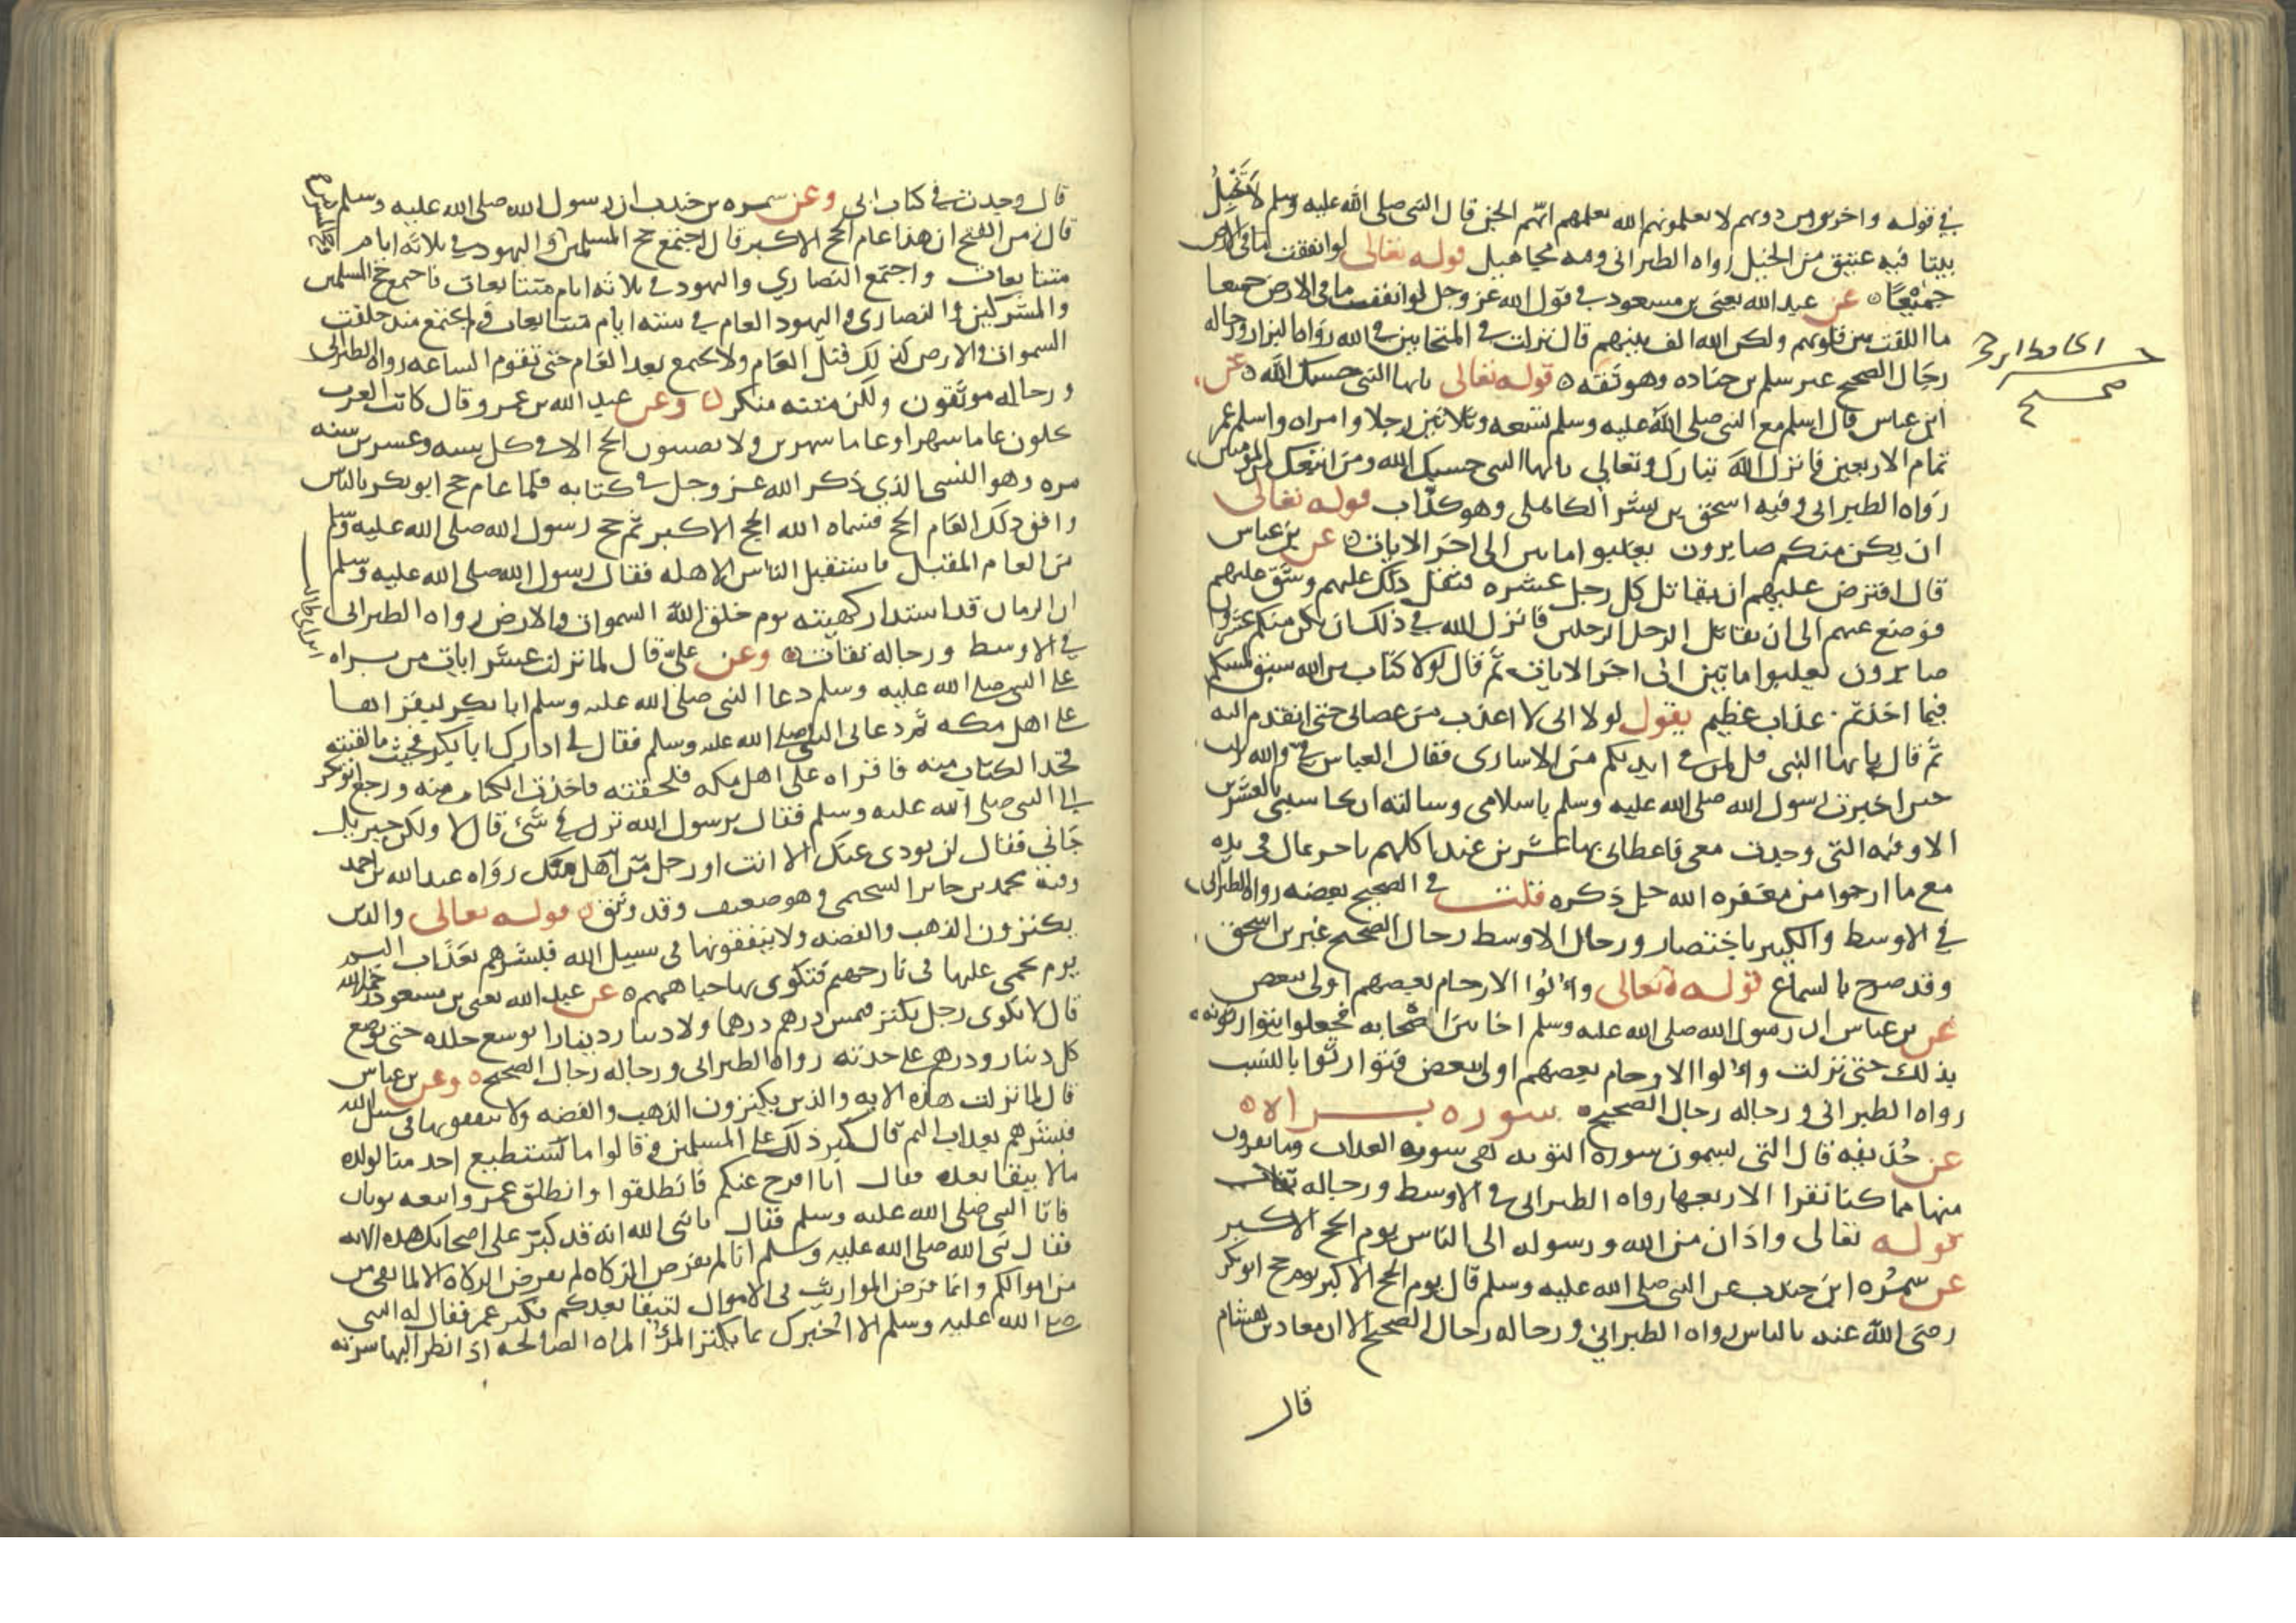 في قوله واخرين من دونهم لا تعلمونهم الله يعلمهم انهم الجن قال النبي صلى الله عليه وسلم لا تخبل
بيتا فيه عتيق من الخيل رواه الطبراني وفيه مجاهيل قوله تعالى لو انفقت ما في الارض
جميعا عن عبد الله يعني بن مسعود في قول الله عز وجل لو انفقت ما في الارض جميعا
ما الفت بين قلوبهم ولكن الله الف بينهم قال نزلت في المتحابين في الله رواه البزار ورجاله
رجال الصحيح غير سلم بن جناده وهو ثقه قوله تعالى يايها النبي حسبك الله عن
ابن عباس قال اسلم مع النبي صلى الله عليه وسلم تسعه وثلاثين رجلا وامراه واسلم عمر
تمام الاربعين فانزل الله تبارك وتعالى يايها النبي حسبك الله ومن اتبعك من المومنين
رواه الطبراني وفيه اسحق بن بشر الكاهلي وهو كذاب قوله تعالى
ان يكن منكم صابرون يغلبوا مايتين الى اخر الايات عن بن عباس
قال افترض عليهم ان يقاتل كل رجل عشره فثقل ذلك عليهم وشق عليهم
فوضع عنهم الى ان يقاتل الرجل الرجلين فانزل الله في ذلك ان يكن منكم عشرون
صابرون يغلبوا مايتين الى اخر الايات ثم قال لولا كتاب من الله سبق لمسكم
فيما اخذتم عذاب عظيم يقول لولا اني لا اعذب من عصاني حتى اتقدم اليه
ثم قال يايها النبي قل لمن في ايديكم من الاسارى فقال العباس في والله نزلت
حين اخبرت رسول الله صلى الله عليه وسلم باسلامي وسالته ان يحاسبني بالعشرين
الاوقيه التي وجدت معي فاعطاني بها عشرين عبدا كلهم تاجر بمالي في يده
مع ما ارجوا من مغفره الله جل ذكره قلت في الصحيح بعضه رواه الطبراني
في الاوسط والكبير باختصار ورجال الاوسط رجال الصحيح غير بن اسحق
وقد صرح بالسماع قوله تعالى واولوا الارحام بعضهم اولى ببعض
عن بن عباس ان رسول الله صلى الله عليه وسلم اخا بين اصحابه فجعلوا يتوارثون
بذلك حتى نزلت واولوا الارحام بعضهم اولى ببعض فتوارثوا بالنسب
رواه الطبراني ورجاله رجال الصحيح سوره براه
عن حذيفه قال التي تسمون سوره التوبه هي سوره العذاب وما تقرون
منها مما كنا نقرا الا ربعها رواه الطبراني في الاوسط ورجاله ثقات
قوله تعالى واذان من الله ورسوله الى الناس يوم الحج الاكبر
عن سمره ابن جندب عن النبي صلى الله عليه وسلم قال يوم الحج الاكبر يوم حج ابو بكر
رضي الله عنه بالناس رواه الطبراني ورجاله رجال الصحيح الا ان معاذ بن هشام
قال
صحيح
قال وجدت في كتاب ابي وعن سمره بن جندب ان رسول الله صلى الله عليه وسلم
قال زمن الفتح ان هذا عام الحج الاكبر قال اجتمع حج المسلمين واليهود في ثلاثه ايام
متتابعات واجتمع النصاري واليهود في ثلاثه ايام متتابعات فاجتمع حج المسلمين
والمشركين والنصارى واليهود العام في سته ايام متتابعات ولم يجتمع منذ خلقت
السموات والارض كذلك قبل العام ولا يجتمع بعد العام حتى تقوم الساعه رواه الطبراني
ورجاله موثقون ولكن متنه منكر وعن عبد الله بن عمرو قال كانت العرب
يحلون عاما شهرا وعاما شهرين ولا يصيبون الحج الا في كل سته وعشرين سنه
مره وهو النسي الذي ذكر الله عز وجل في كتابه فلما عام حج ابو بكر بالناس
وافق ذلك العام الحج فسماه الله الحج الاكبر ثم حج رسول الله صلى الله عليه وسلم
من العام المقبل فاستقبل الناس الاهله فقال رسول الله صلى الله عليه وسلم
ان الزمان قد استدار كهيئته يوم خلق الله السموات والارض رواه الطبراني
في الاوسط ورجاله ثقات وعن علي قال لما نزلت عشر ايات من براه
على النبي صلى الله عليه وسلم دعا النبي صلى الله عليه وسلم ابا بكر ليقراها
على اهل مكه ثم دعاني النبي صلى الله عليه وسلم فقال لي ادرك ابا بكر فحيث ما لقيته
فخذ الكتاب منه فاقراه على اهل مكه فلحقته فاخذت الكتاب منه ورجع ابو بكر
الى النبي صلى الله عليه وسلم فقال يرسول الله نزل في شئ قال لا ولكن جبريل
جاني فقال لن يودي عنك الا انت او رجل من اهل منك رواه عبد الله بن احمد
وفيه محمد بن جابر السحيمي وهو ضعيف وقد وثق قوله تعالى والذين
يكنزون الذهب والفضه ولا ينفقونها في سبيل الله فبشرهم بعذاب اليم
يوم يحمى عليها في نار جهنم فتكوى بها جباههم عن عبد الله يعني بن مسعود
قال لا يكوى رجل يكنز فيمس درهم درهما ولا دينار دينارا يوسع جلده حتى يوضع
كل دينار ودرهم على حدته رواه الطبراني ورجاله رجال الصحيح وعن بن عباس
قال لما نزلت هذه الايه والذين يكنزون الذهب والفضه ولا ينفقونها في سبيل الله
فبشرهم بعذاب اليم قال كبر ذلك على المسلمين وقالوا ما يستطيع احد منا لولده
مالا يبقا بعده فقال انا افرج عنكم فانطلقوا وانطلق عمر واتبعه ثوبان
فاتا النبي صلى الله عليه وسلم فقال يا نبي الله انه قد كبر على اصحابك هذه الايه
فقال نبي الله صلى الله عليه وسلم ان الله لم يفرض الزكاه الا لما بقي من
من اموالكم وانما فرض المواريث في الاموال لتبقا بعدكم فكبر عمر فقال له النبي
صلى الله عليه وسلم الا اخبرك بما يكنز المرؤ المراه الصالحه اذا نظر اليها سرته